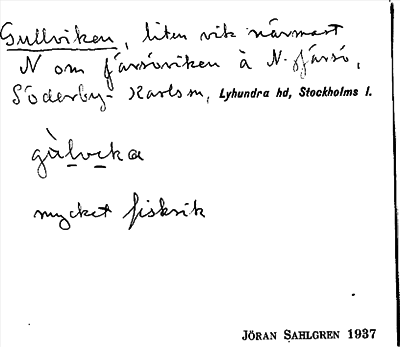 Gullviken, liten vik närmast
N om Färsöviken å N. Färsö,
Söderby-Karls sn, Lyhundra hd, Stockholms l.
gùlvika
mycket fiskrik
JÖRAN SAHLGREN 1937